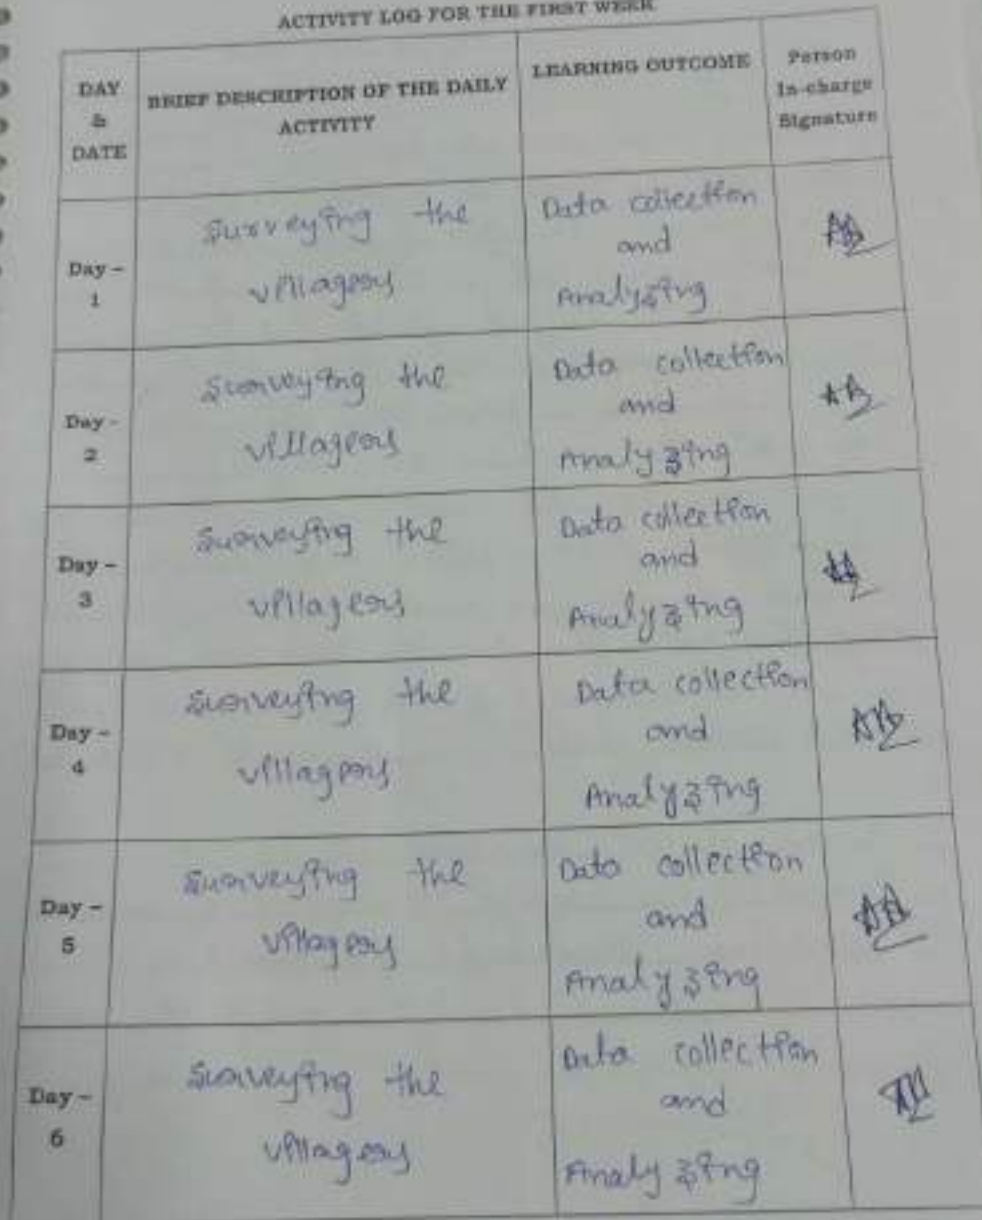 ACTIVITY LOG FOR THE FIRST WEEK
DAY
&
DATE
BRIEF DESCRIPTION OF THE DAILY
ACTIVITY
LEARNING OUTCOME
Person
In-charge
Signature
Day -
1
Surveying the
villagers
Data collection
and
Analyzing
Day -
2
Surveying the
villagers
Data collection
and
Analyzing
Day -
3
Surveying the
villagers
Data collection
and
Analyzing
Day -
4
Surveying the
villagers
Data collection
and
Analyzing
Day -
5
Surveying the
villagers
Data collection
and
Analyzing
Day -
6
Surveying the
villagers
Data collection
and
Analyzing